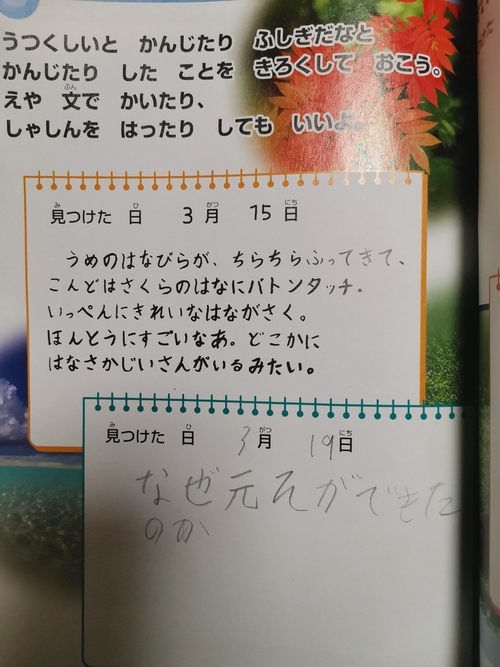 うつくしいと かんじたり ふしぎだなと
かんじたり した ことを きろくして おこう。
えや 文で かいたり、
しゃしんを はったり しても いいよ。
見つけた 日 3月 15日
うめのはなびらが、ちらちらふってきて、
こんどはさくらのはなにバトンタッチ.
いっぺんにきれいなはながさく。
ほんとうにすごいなあ。どこかに
はなさかじいさんがいるみたい。
見つけた 日 3月 19日
なぜ元そができた
のか